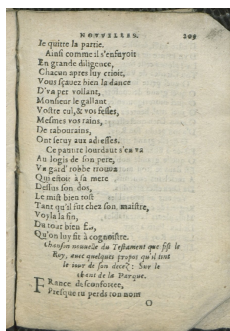 NOUVELLES. 209
Ie quitte la partie.
Ainsi comme il s'enfuyoit
En grande diligence,
Chacun apres luy crioit,
Vous sçauez bien la dance
D'va per vollant,
Monsieur le gallant
Vostre cul, & vos fesses,
Mesmes vos rains,
De rabourains,
Ont seruy aux adresses.
Ce pauure lourdaut s'en va
Au logis de son pere,
Vn gard' robbe trouua
Qui estoit à sa mere
Dessus son dos,
Le mist bien tost
Tant qu'il fut chez son maistre,
Voyla la fin,
Du tout bien
Qu'on luy fit à cognoistre.
Chanson nouuelle du Testament que fist le
Roy, auec quelques propos qu'il tint
le iour de son decez: Sur le
chant de la Parque.
France desconfortee,
Presque tu perds ton nom
O